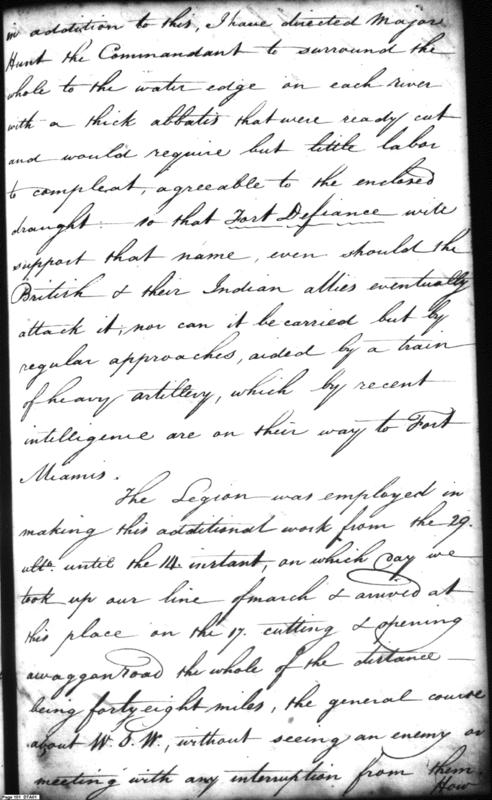 in addition to this, I have directed Major
Hunt the Commandant to surround the
whole to the water edge on each river
with a thick abbatis that were ready cut
and would require but little labor
to compleat, agreeable to the enclosed
draught - so that Fort Defiance will
support that name, even should the
British & their Indian allies eventually
attack it, nor can it be carried but by
regular approaches, aided by a train
of heavy artillery, which by recent
intelligence are on their way to Fort
Miamis.
The Legion was employed in
making this additional work from the 29.
ulto. until the 14 instant, on which day we
took up our line of march & arrived at
this place on the 17. cutting & opening
a waggon road the whole of the distance -
being forty eight miles, the general course
about W.S.W., without seeing an enemy or
meeting with any interruption from them.
How